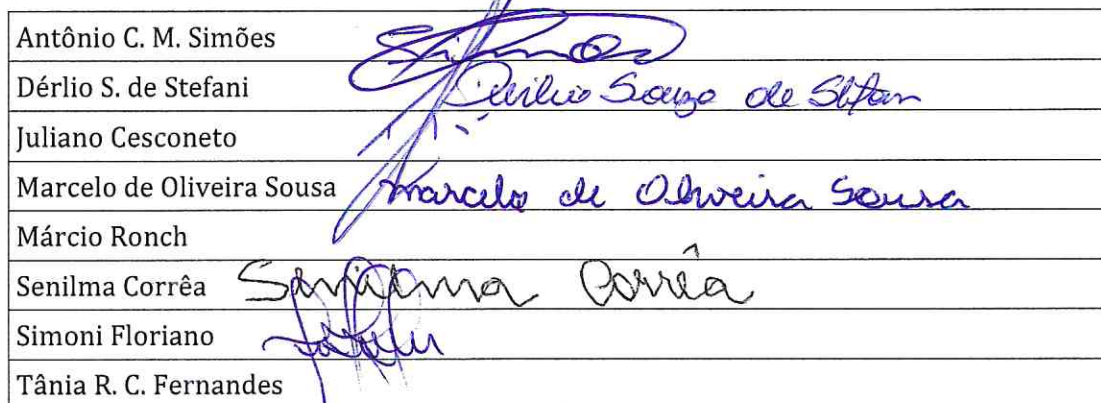 Antônio C. M. Simões
Dérlio S. de Stefani
Juliano Cesconeto
Marcelo de Oliveira Sousa Marcelo de Oliveira Sousa
Márcio Ronch
Senilma Corrêa Senilma Corrêa
Simoni Floriano
Tânia R. C. Fernandes